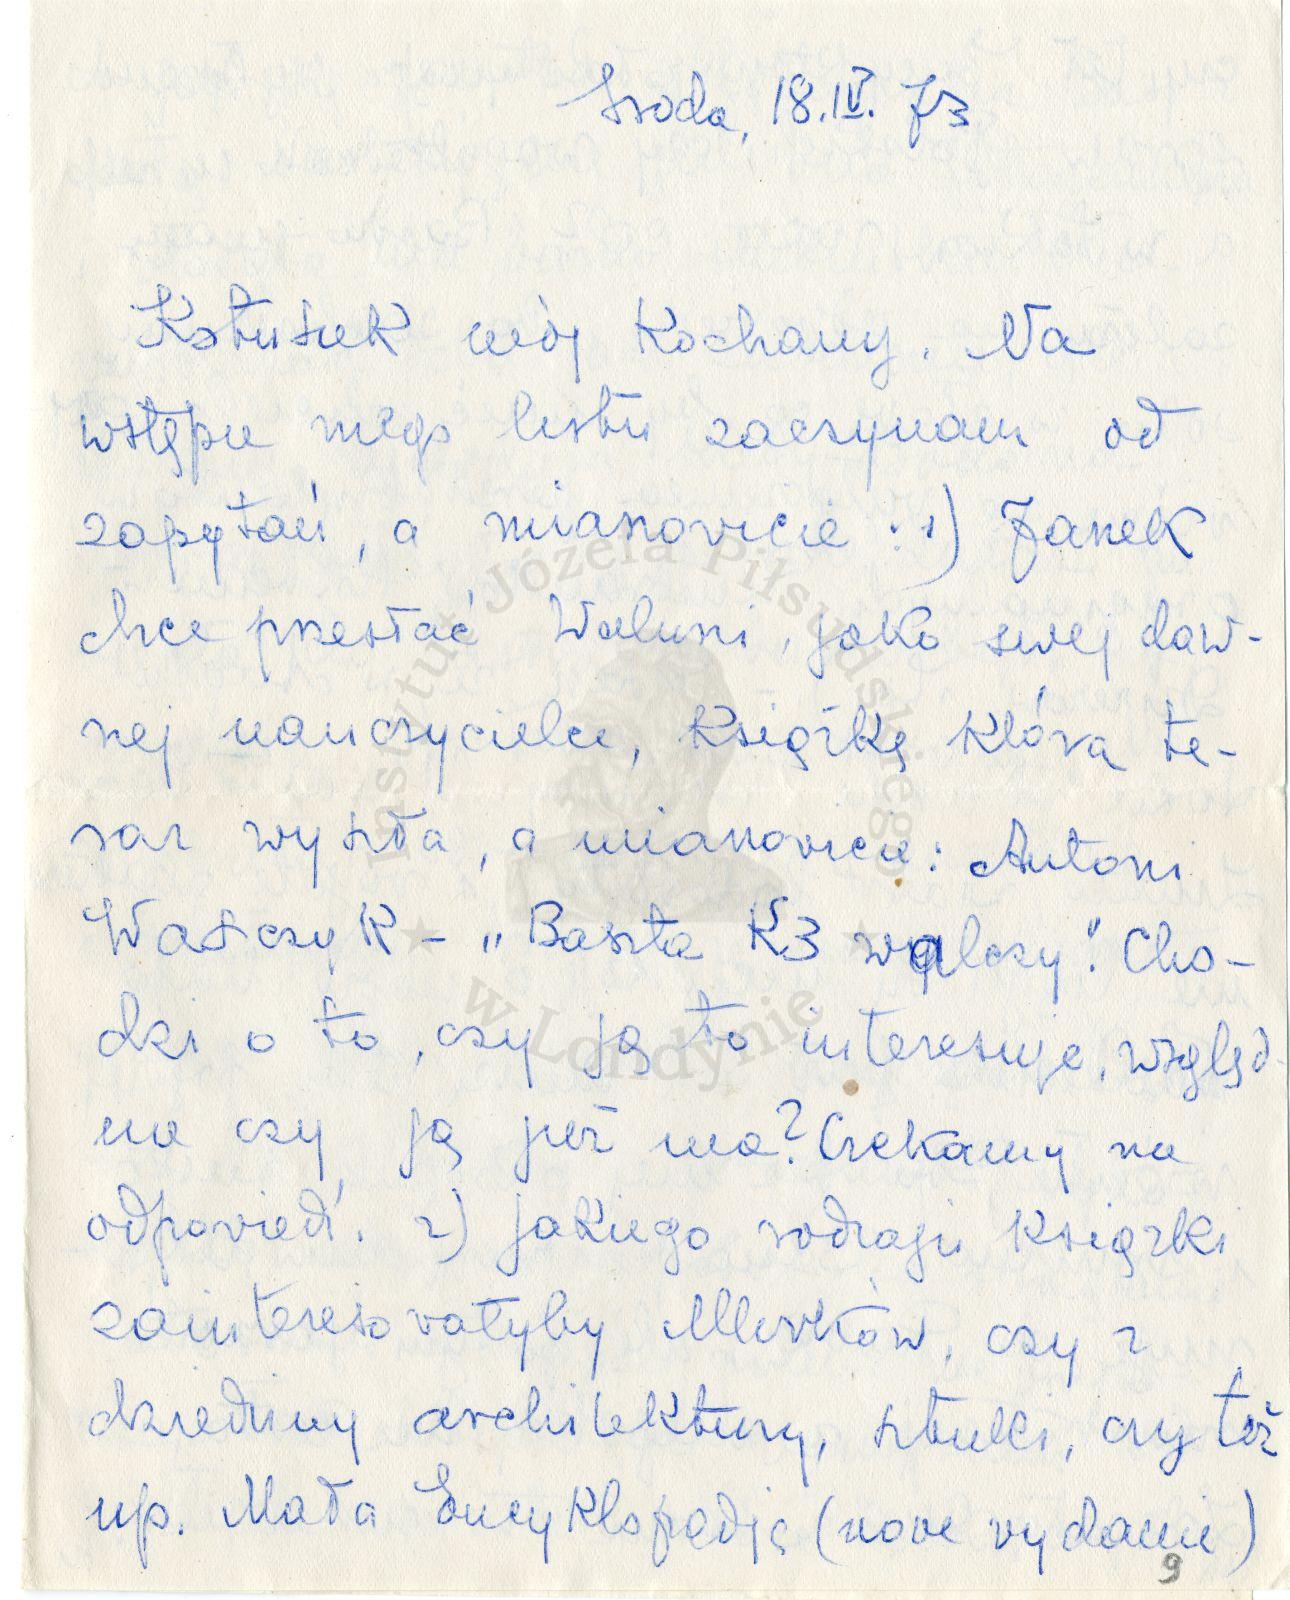 Środa, 18.IV.73
Kotusiek mój Kochany. Na
wstępie mego listu zaczynam od
zapytań, a mianowicie: 1) Janek
chce przesłać Waluni, jako swej daw-
nej nauczycielce, książkę która te-
raz wyszła, a mianowicie: Antoni
Wałczyk - "Baszta K3 walczy". Cho-
dzi o to, czy ją to interesuje, względ-
nie czy ją już ma? Czekamy na
odpowiedź. 2) jakiego rodzaju książki
zainteresowałyby Mirków, czy z
dziedziny architektury, sztuki, czy też
np. Mała Encyklopedję (nowe wydanie)
9
Instytut Józefa Piłsudskiego
w Londynie